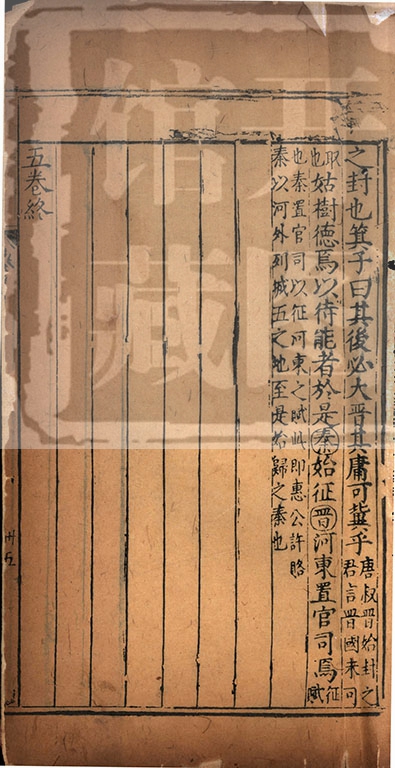 之封也箕子曰其後必大晉其庸可冀乎唐叔晉始封之
君言晉國未可
取
也
姑樹德焉以待能者於是秦始征晉河東置官司焉征
賦
也秦置官司以征河東之賦此即惠公許賂
秦以河外列城五之地至是始歸之秦也
五卷終
卅五
馆藏